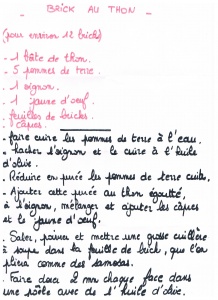 - BRICK AU THON -
(pour environ 12 bricks)
- 1 boîte de thon.
- 5 pommes de terre.
- 1 oignon.
- 1 jaune d'oeuf.
- feuilles de bricks.
- câpres.
- faire cuire les pommes de terre à l'eau.
- hacher l'oignon et le cuire à l'huile
d'olive.
- Réduire en purée les pommes de terre cuites.
- Ajouter cette purée au thon égoutté,
à l'oignon, mélanger et ajouter les câpres
et le jaune d'oeuf.
- Saler, poivrer et mettre une grosse cuillère
à soupe dans la feuille de brick, que l'on
pliera comme des samosas.
- Faire dorer 2 mn chaque face dans
une poêle avec de l'huile d'olive.